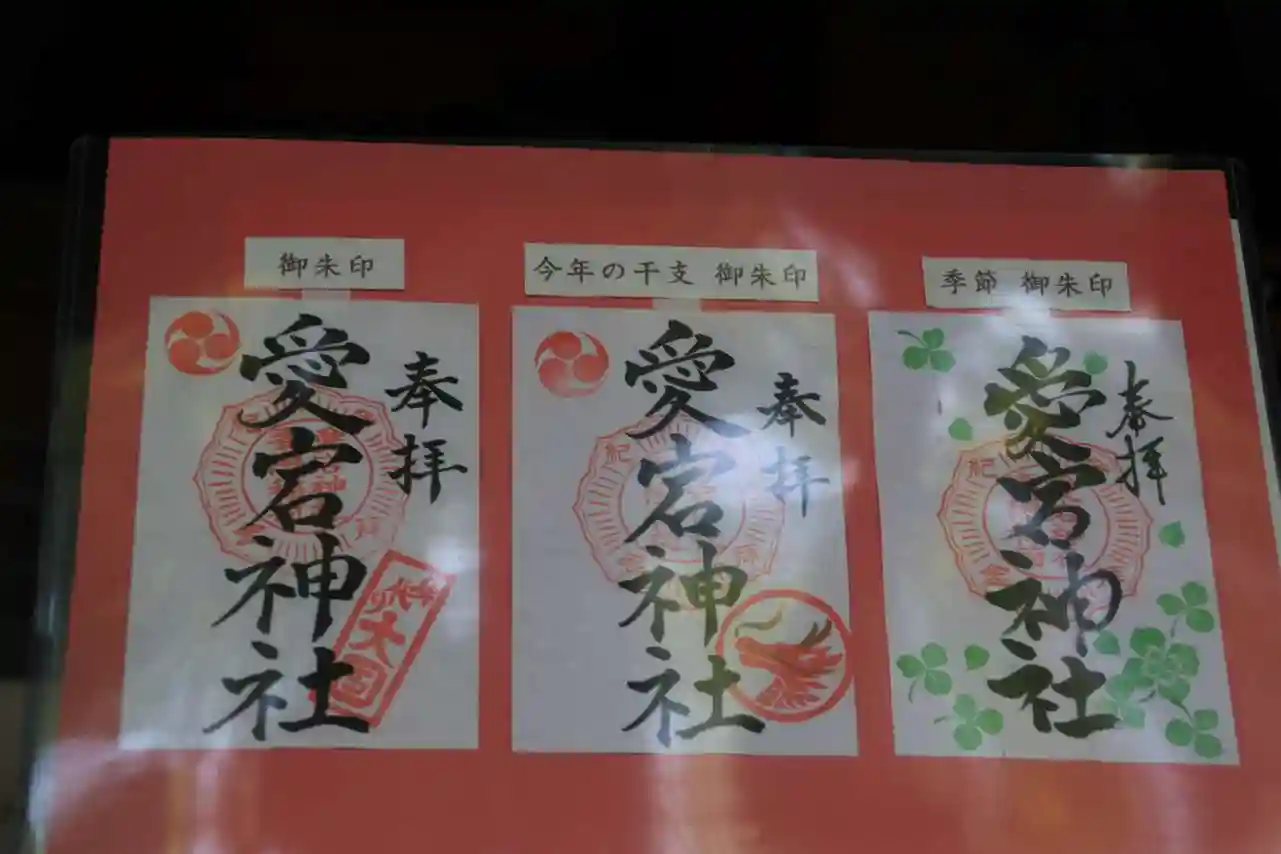 御朱印
今年の干支 御朱印
季節 御朱印
奉拝
愛宕神社
奉拝
愛宕神社
奉拝
愛宕神社